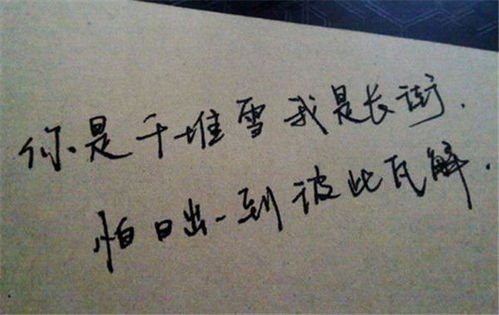 你是千堆雪 我是长街.
怕日出一到 彼此瓦解.